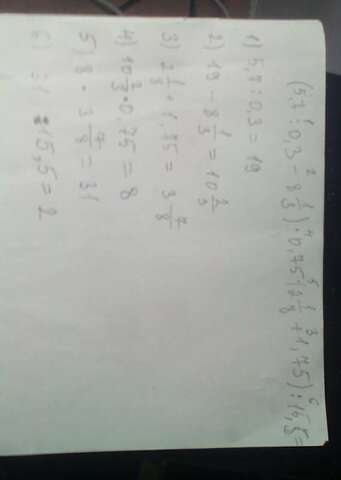 (5,7 : 0,3 - 8 1/3) · 0,75 · (2 1/8 + 1,75) : 15,5 =
1) 5,7 : 0,3 = 19
2) 19 - 8 1/3 = 10 2/3
3) 2 1/8 + 1,75 = 3 7/8
4) 10 2/3 · 0,75 = 8
5) 8 · 3 7/8 = 31
6) 31 : 15,5 = 2